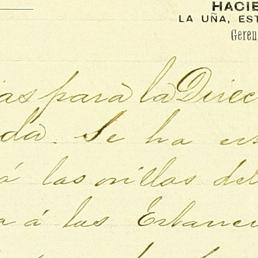 HACIE
LA UÑA, EST
Geren
ias para la Direc
da. Se ha es
á las orillas del
a á las Estanci